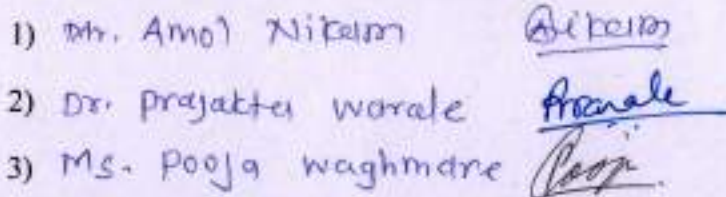 1) Mr. Amol Nikam Nikam
2) Dr. Prajakta Warale
3) Ms. Pooja Waghmare Pooja